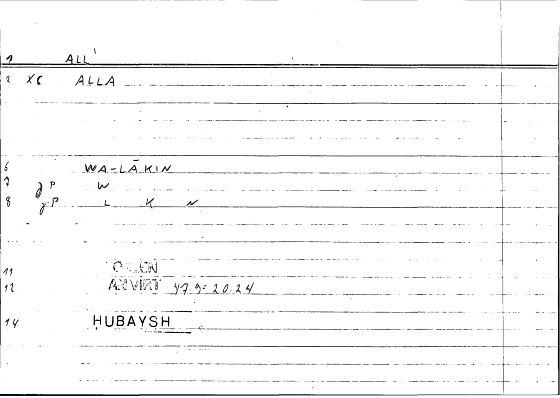 1 ALL'
2 XE ALLA
6 WA-LĀKIN
7 γP W
8 γP L K N
11
12 AN VIRT 47.9: 20.24
14 HUBAYSH